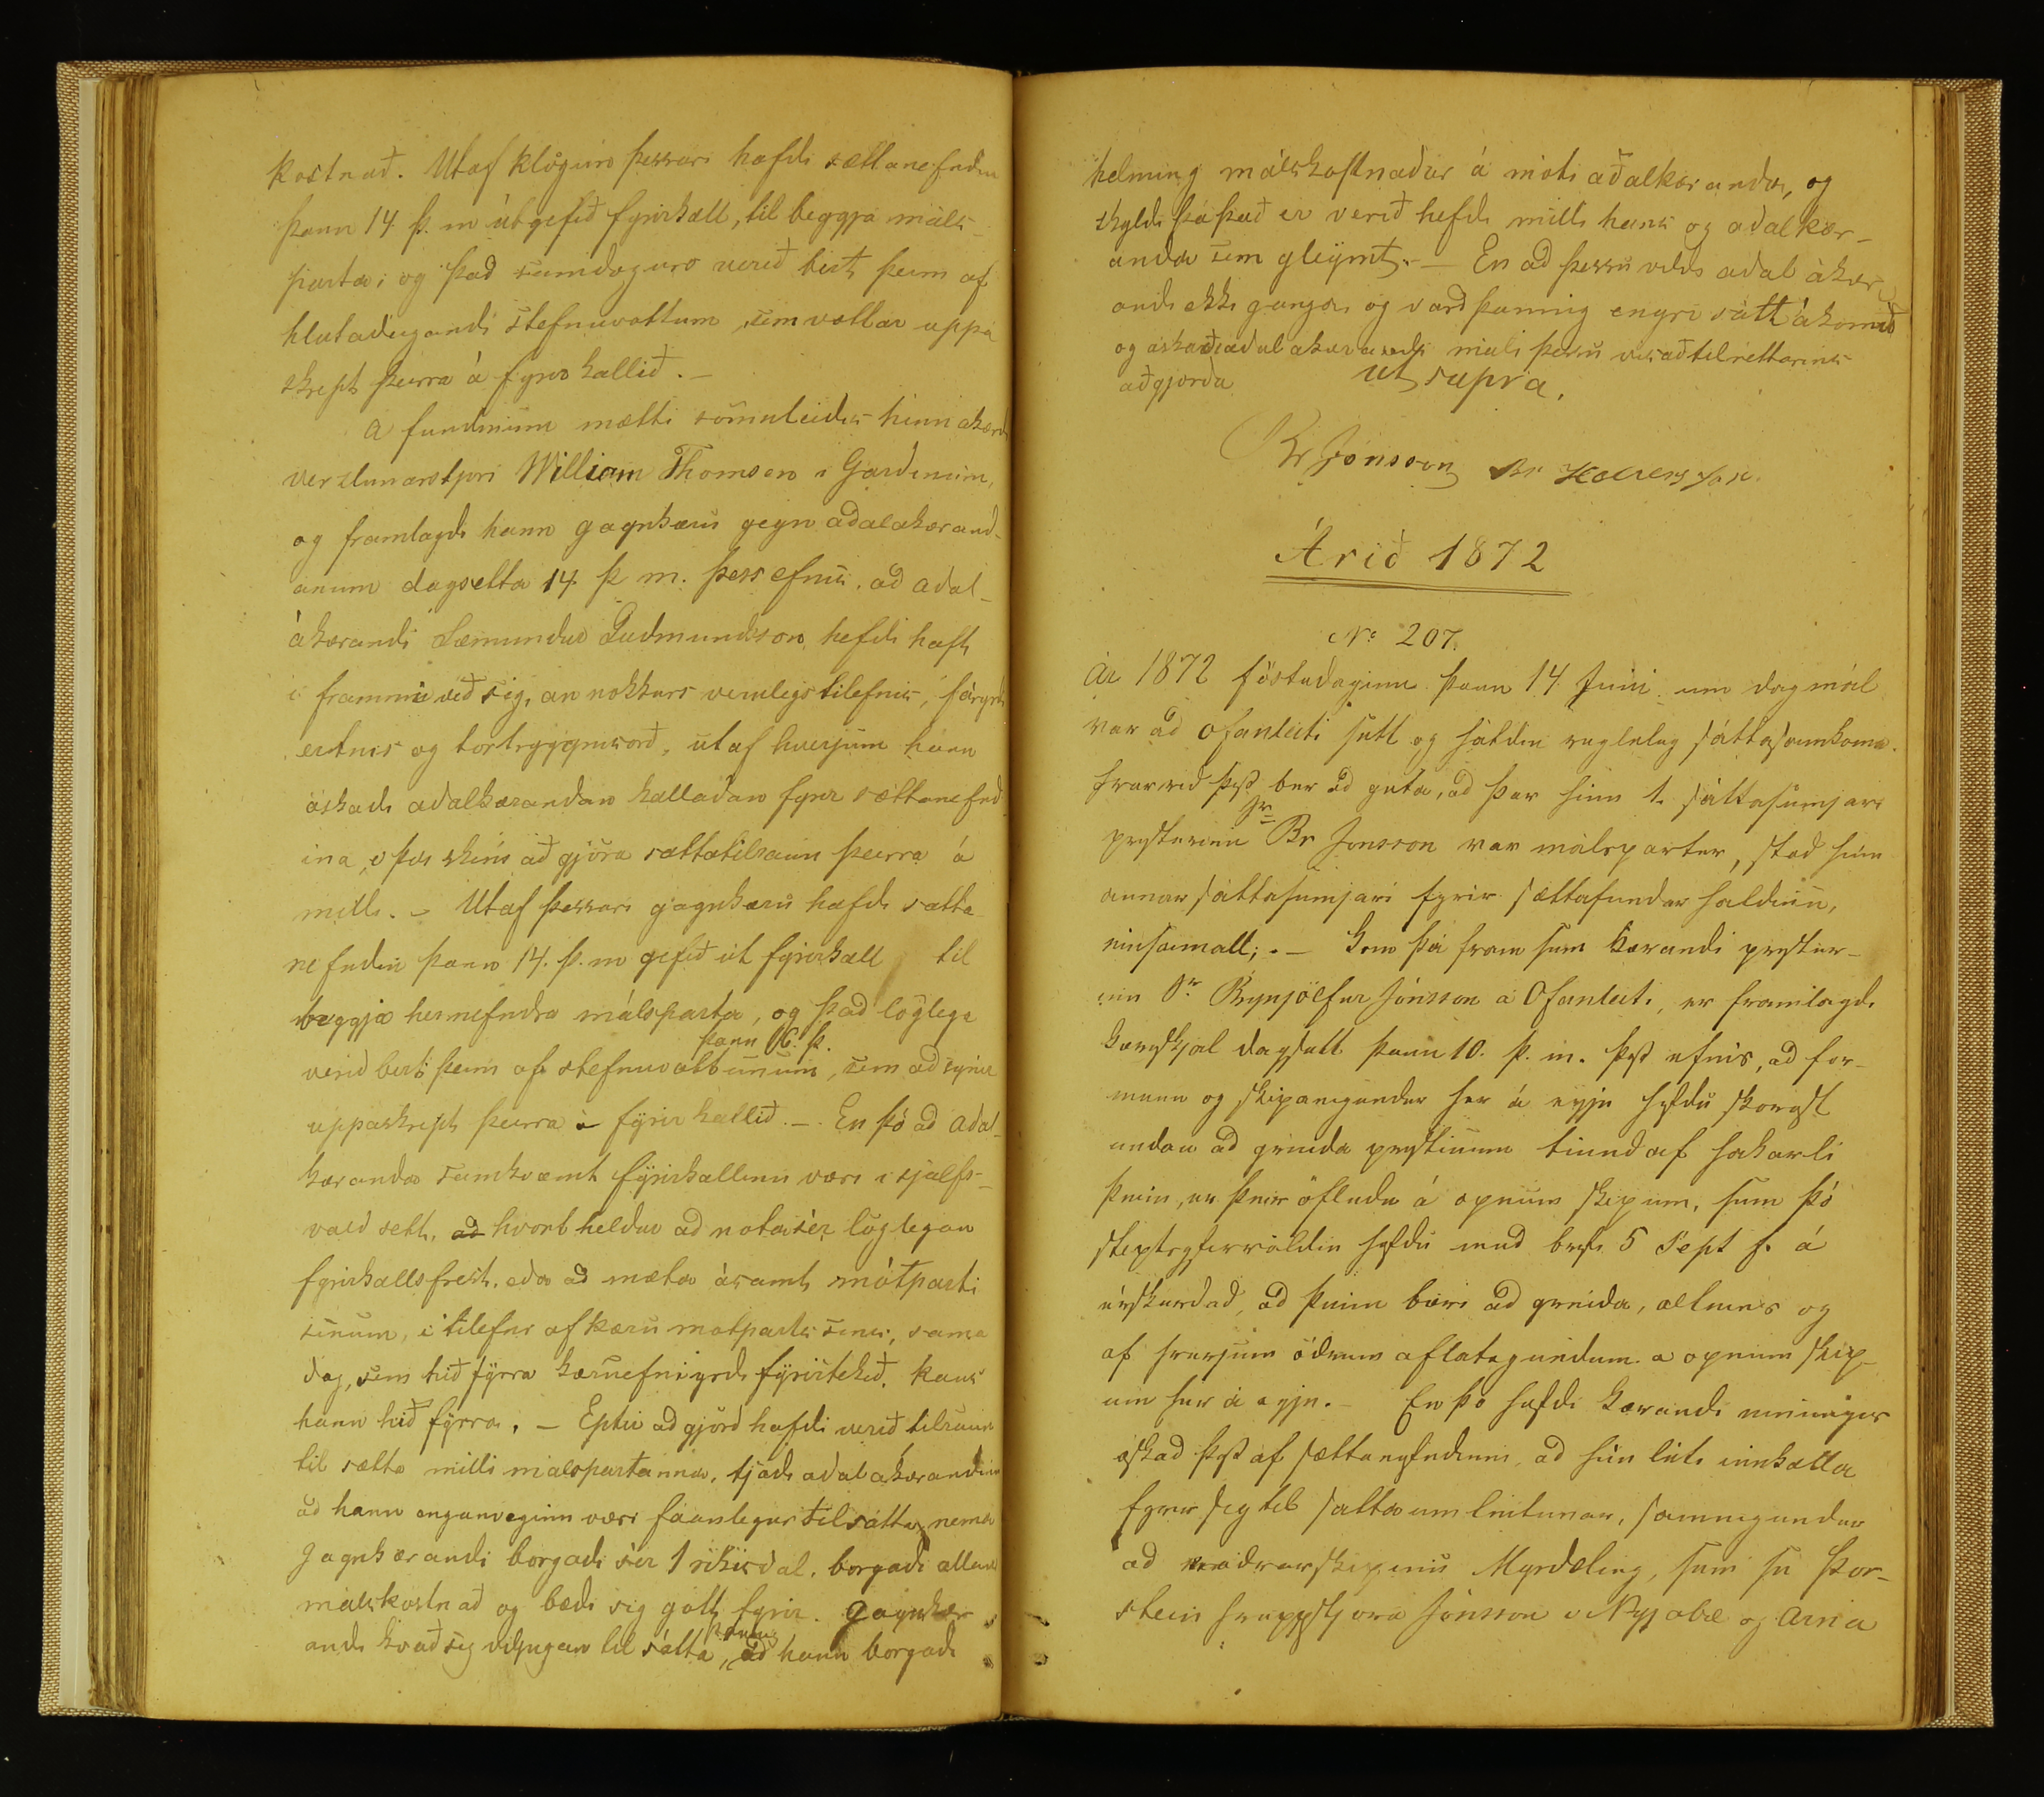 kostnað. Utaf klögun þessari hafdi sættanefndin
þann 14 þ. m útgefið fyrirkall, til beggja máls-
parta; og það samdægurs verið birt þeim af
hlutaðeigandi stefnuvottum, sem vottar uppá
skript þeirra á fyrirkallið. –
A fundinum mætti sömuleidis hinn ákærdi
verzlunarstjori William Thomsen i Gardinum,
og framlagdi hann gagnkæru gegn adalákærand-
anum dagsetta 14. þ m. þess efnis, ad adal-
ákærandi Sæmundur Gudmundsson, hefdi haft
i frammi við sig, an nokkurs verulegs tilefnis, fáryrdi
ertnis og tortryggnisorð, útaf hverjum hann
óskadi adalkærandan kalladan fyrir sættanefnd
ina, i því skini að gjöra sættatilraun þeirra á
milli. – Utaf þessari gagnkæru hafdi sætta
nefndin þann 14. þ. m gefið út fyrirkall til
beggja hernefndra málsparta, og það löglega
þann 16. þ.
verid birt þeim af stefnuvottunum, sem ad synir
uppáskript þeirra á fyrirkallið. –. En þó ad Adal-
kæranda samkvæmt fyrirkallinu væri i sjalfs-
vald sett, ad hvort heldur ad nota sér löglegan
fyrirkallsfrest, eda ad mæta ásamt mótparti
sinum, i tilefni af kæru motparts sins, sama
dag, sem hið fyrra kæruefni yrdi fyrirtekið, kaus
hann hið fyrra. – Eptir ad gjörd hafdi verið tilraun
til sætta milli malspartanna, tjádi adalákærandinn
ad hann enganveginn væri fáanlegur til sátta, nema
Gagnkærandi borgadi sér 1 rikisdal, borgadi allan
málskostnað og bædi sig gott fyrir. Gagnkær
andi kvað sig viljugan til sátta, þannig ad hann borgadi
helming málskostnaðar á móti aðalkæranda, og
skyldi þá það er verið hefdi milli hans og adalkær-
anda sem gleymt. – En ad þessu vildi adal ákær
andi ekki ganga, og vard þannig engri sátt ákomið
og óskaði adalákærandi máli þessu vísað til réttarins
aðgjörda ut supra.
Br Jónsson Br Halldórsson.
Árið 1872
No 207.
Ár 1872 föstudaginn þann 14 Juni um dagmál
var ad Ofanleiti sett og haldin regluleg sáttasamkoma.
Hvarvid þess ber ad geta, ad þar hinn 1. sáttasemjari
presturinn Sr Br Jonsson var málspartur, stod hinn
annar sáttasemjari fyrir sættafundar haldinu,
einsamall; . – Kom þá fram sem kærandi prestur-
inn Sr Brynjölfur Jónsson á Ofanleiti, er framlagdi
kæruskjal dagsett þann 10. þ. m. þess efnis, ad for-
menn og skipaeigendur her á eyju hefdu skorast
undan ad greida prestinum tiund af hakarli
þeim, er þeir öfludu á opnum skipum, sem þó
stiptsyfirvöldin hefdu med brefi 5 Sept f. á
úrskurdad, ad þeim bæri ad greida, allens og
af hverjum ödrum aflategundum á opnum skip-
um her á eyju. – En þó hefdi kærandi einungis
æskad þess af sættanefndinni, ad hún léti innkalla
fyrir sig til sáttaumleitunar, sameigendur
ad vedrarskipinu Myrdæling, sem se Þor-
stein hreppstjora Jónsson i Nyjabæ og Arna